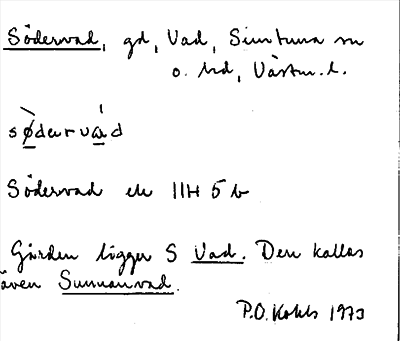 Södervad, gd, Vad, Simtuna sn
o. hd, Västm. l.
sødərvad
Södervad ek 11H 5b
Gården ligger S Vad. Den kallas
även Sunnanvad.
P.O. Kohls 1973